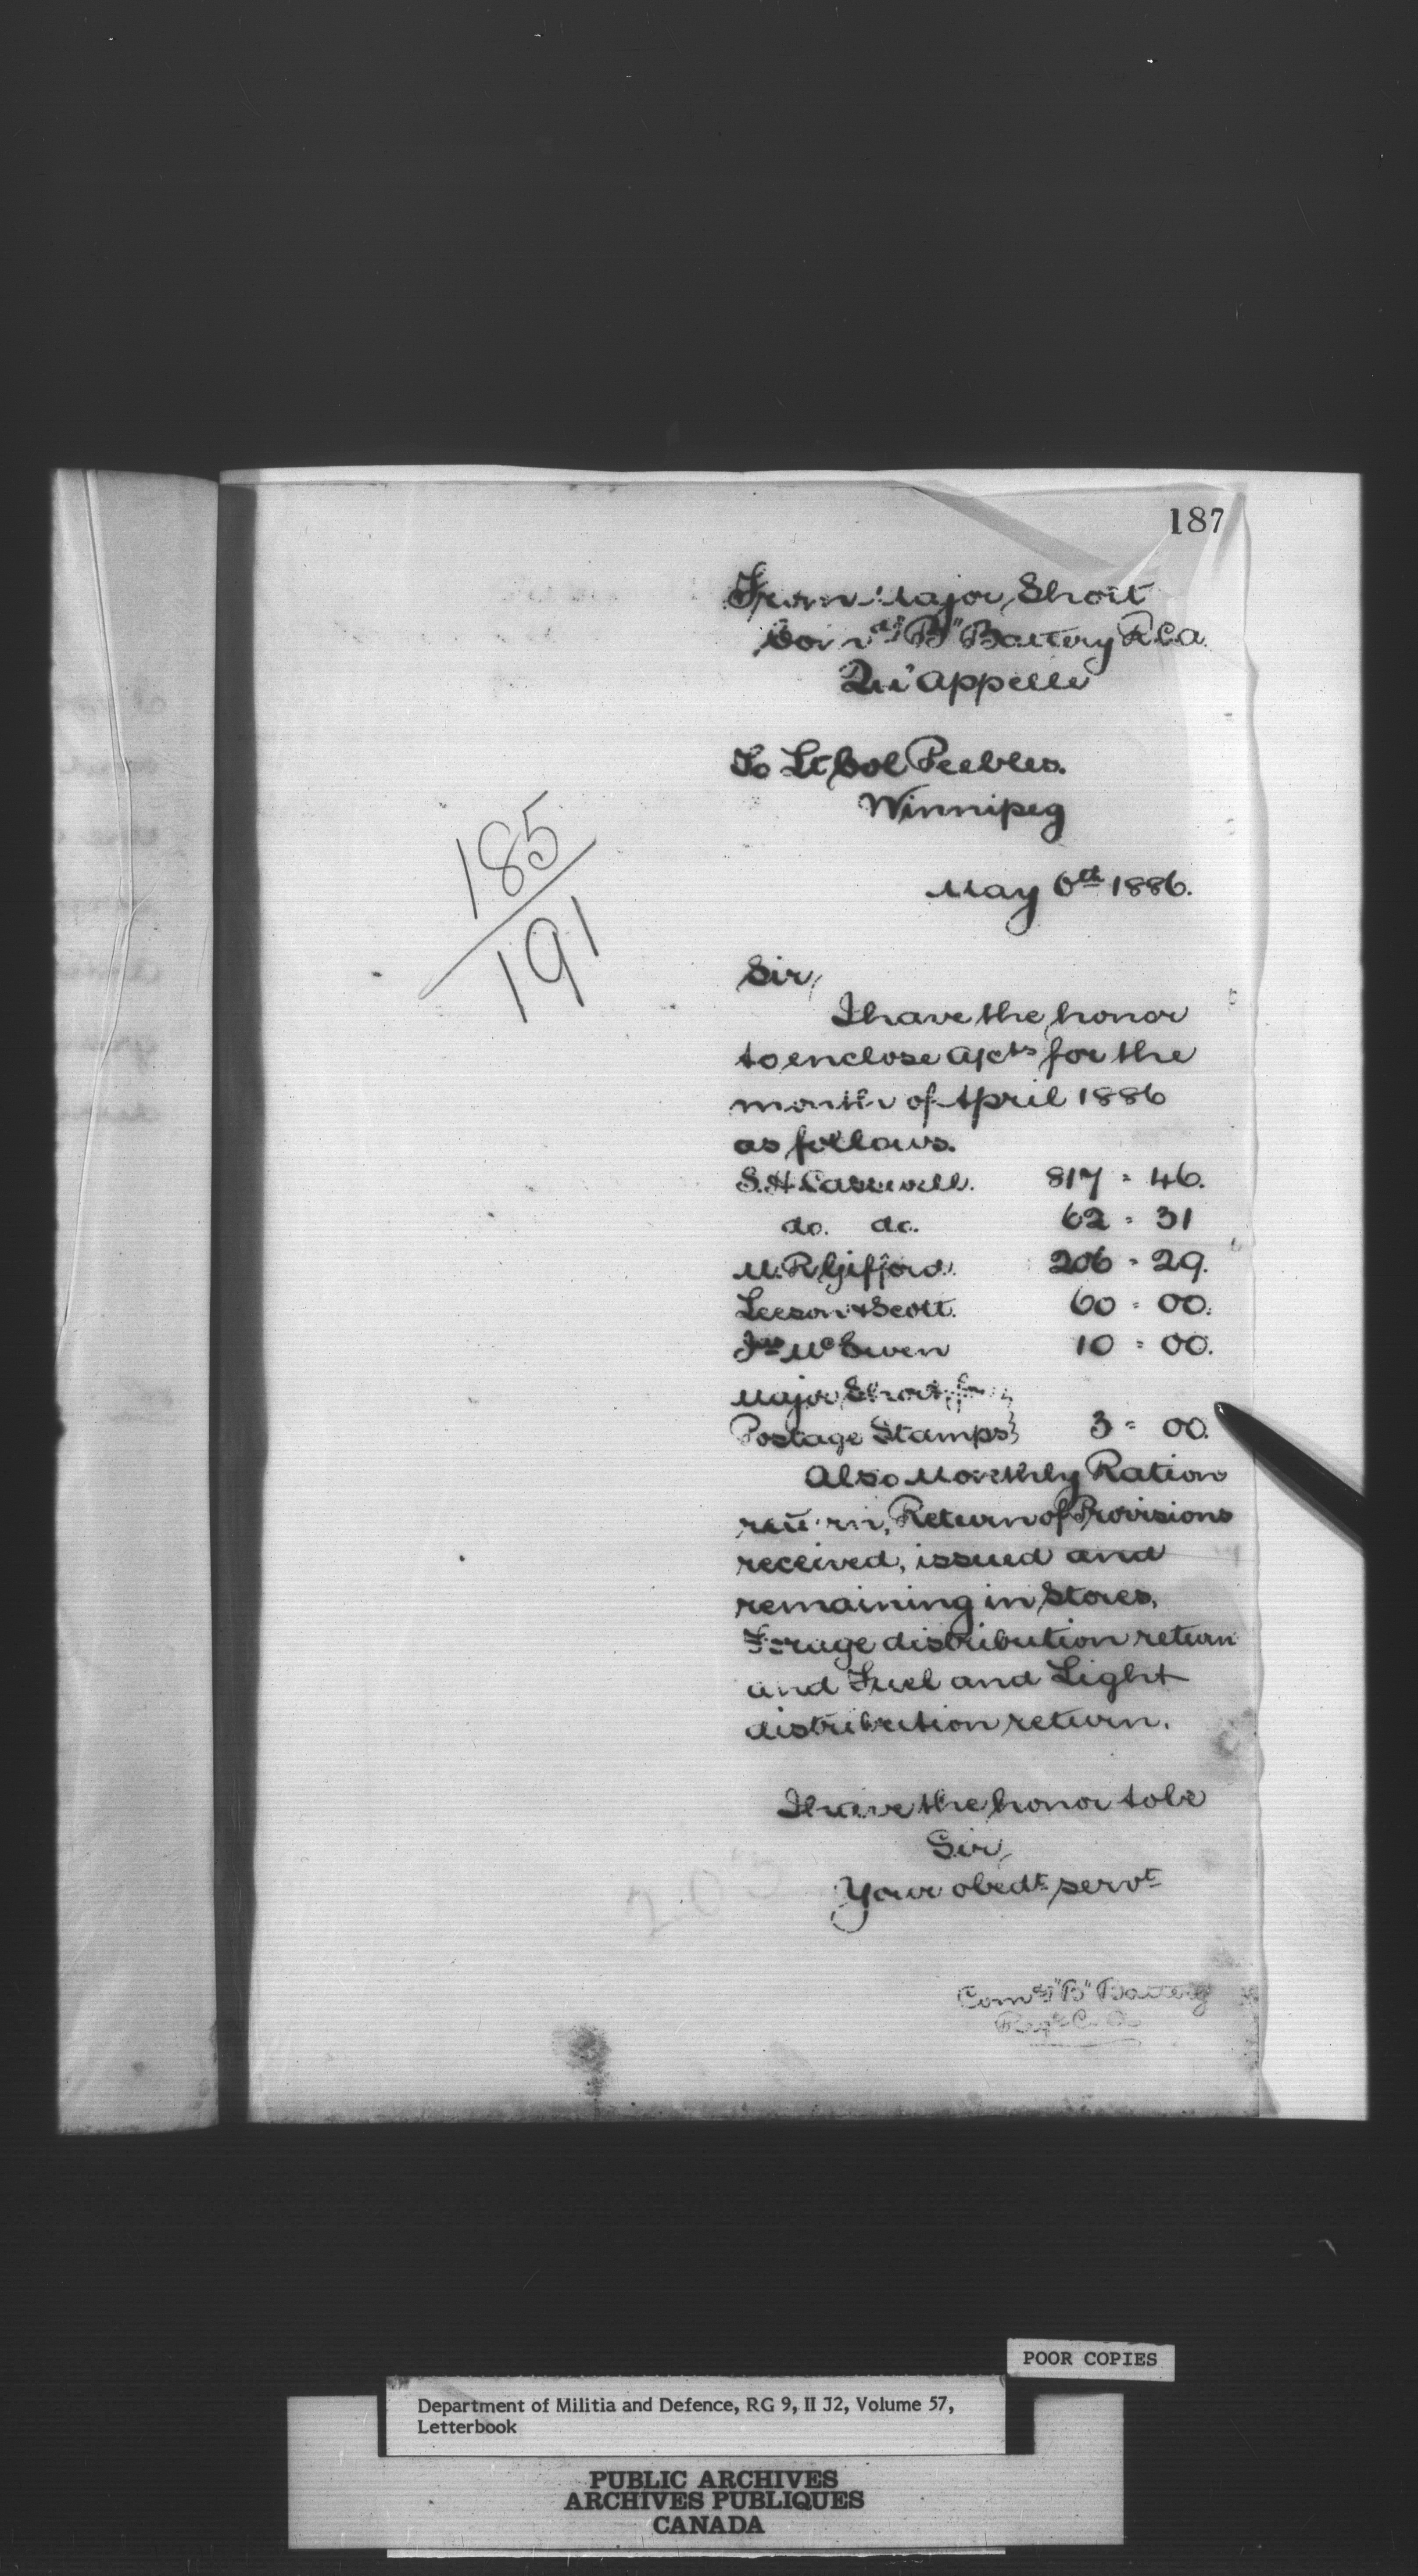 187
From Major Short
Comdg "B" Battery R.C.A.
Qu'Appelle
To Lt Col Peebles.
Winnipeg
May 6th 1886.
185
191
Sir,
I have the honor
to enclose a/cts for the
month of April 1886
as follows.
S. H. Caswell. 817 = 46.
do. do. 62 = 31
M. R. Gifford. 206 = 29.
Leeson & Scott. 60 = 00.
Jno McEwen 10 = 00.
Major Short, for }
Postage Stamps } 3 = 00.
Also Monthly Ration
return, Return of Provisions
received, issued and
remaining in Stores,
Forage distribution return
and Fuel and Light
distribution return.
I have the honor to be
Sir,
Your obedt servt
203
Comdg "B" Battery
Regt C. A.
POOR COPIES
Department of Militia and Defence, RG 9, II J2, Volume 57,
Letterbook
PUBLIC ARCHIVES
ARCHIVES PUBLIQUES
CANADA